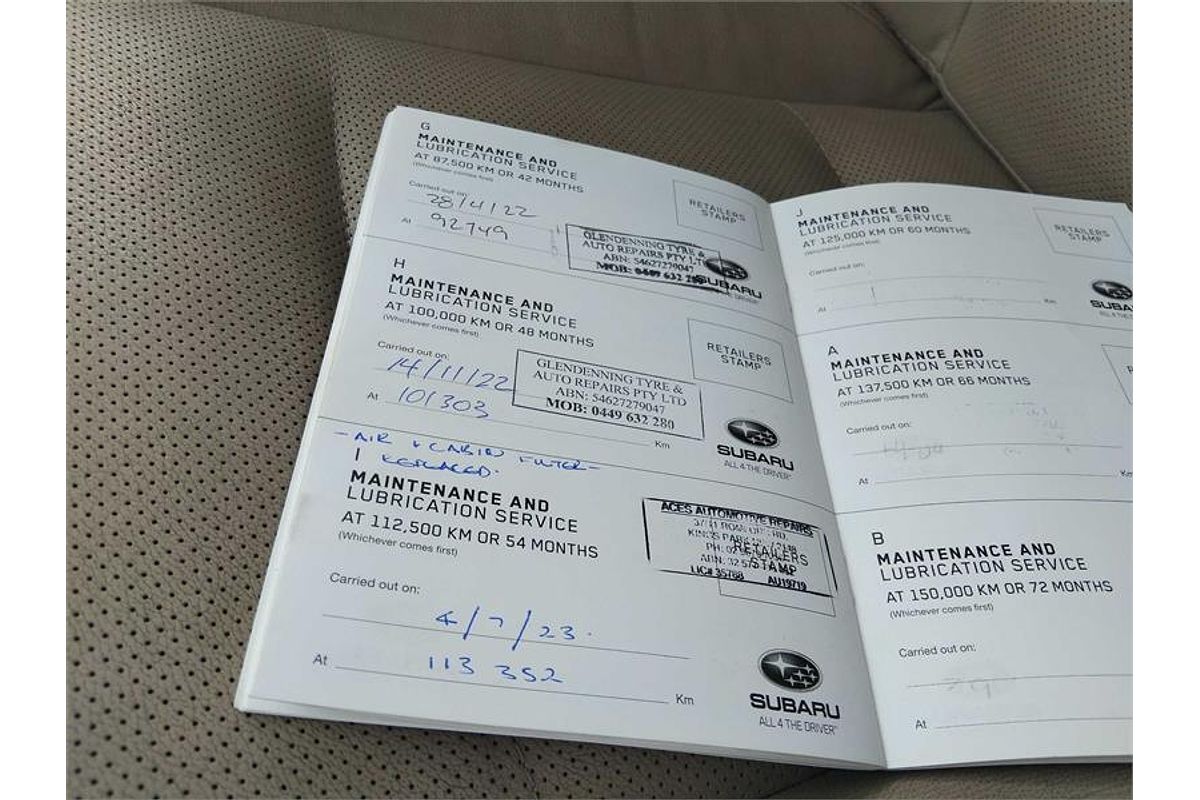 G
MAINTENANCE AND
LUBRICATION SERVICE
AT 87,500 KM OR 42 MONTHS
(Whichever comes first)
RETAILERS
STAMP
Carried out on:
28/4/22
At 92749
GLENDENNING TYRE &
AUTO REPAIRS PTY LTD
ABN: 54627279047
MOB: 0449 632 280
SUBARU
H
MAINTENANCE AND
LUBRICATION SERVICE
AT 100,000 KM OR 48 MONTHS
(Whichever comes first)
RETAILERS
STAMP
Carried out on:
14/11/22
At 101303
Km
GLENDENNING TYRE &
AUTO REPAIRS PTY LTD
ABN: 54627279047
MOB: 0449 632 280
SUBARU
ALL 4 THE DRIVER
- AIR + CABIN FILTER -
REPLACED.
I
MAINTENANCE AND
LUBRICATION SERVICE
AT 112,500 KM OR 54 MONTHS
(Whichever comes first)
ACES AUTOMOTIVE REPAIRS
RETAILERS
STAMP
LIC# 35768 AU19719
Carried out on:
4/7/23.
At 113 352 Km
SUBARU
ALL 4 THE DRIVER
J
MAINTENANCE AND
LUBRICATION SERVICE
AT 125,000 KM OR 60 MONTHS
(Whichever comes first)
RETAILERS
STAMP
Carried out on:
At Km
SUBA
ALL 4 THE
A
MAINTENANCE AND
LUBRICATION SERVICE
AT 137,500 KM OR 66 MONTHS
(Whichever comes first)
R
Carried out on:
At Km
B
MAINTENANCE AND
LUBRICATION SERVICE
AT 150,000 KM OR 72 MONTHS
(Whichever comes first)
Carried out on:
At